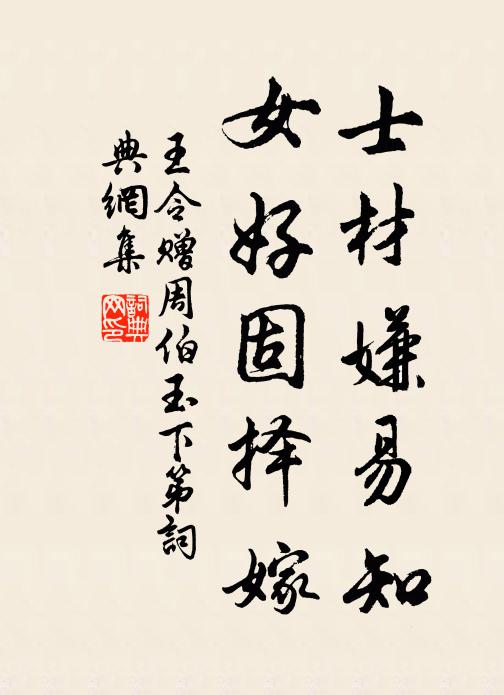 士材嫌易知
女好固择嫁
王令赠周伯玉下第詞
典網集
詞典网印